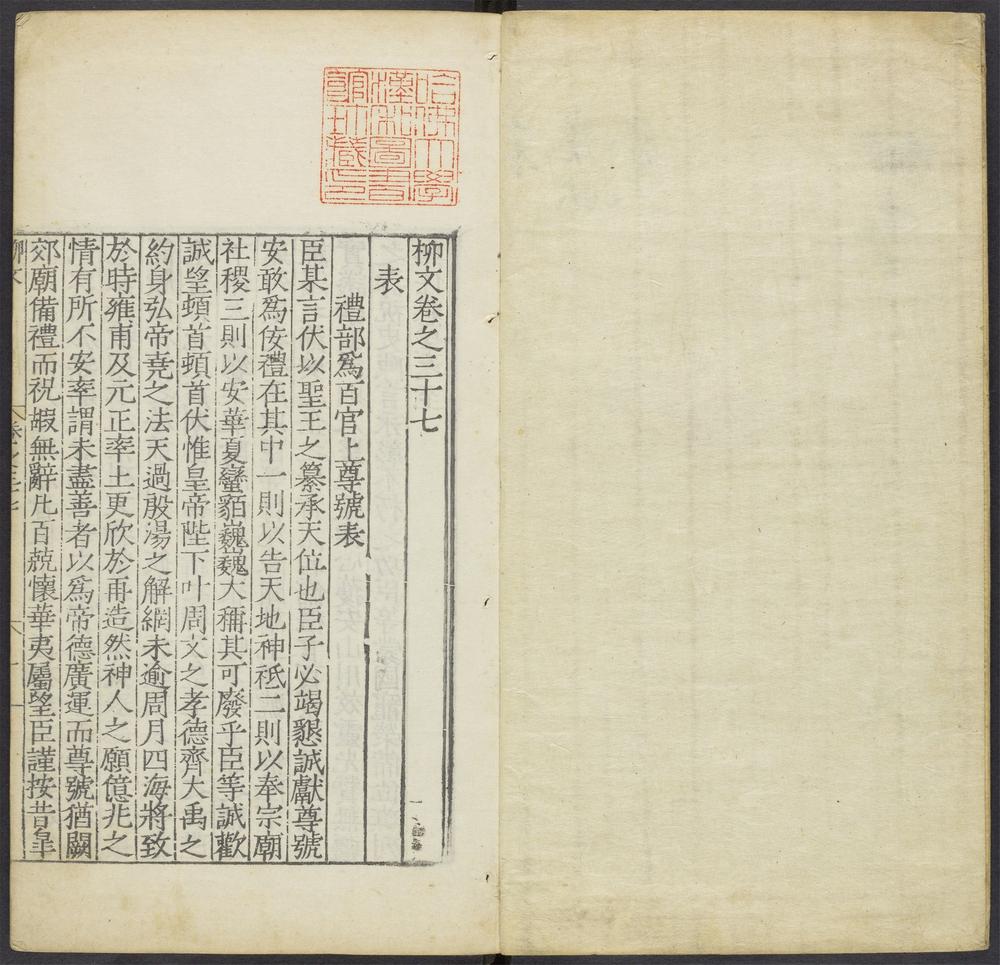 哈佛大學
漢和圖書
館珍藏印
柳文卷之三十七
表
禮部爲百官上尊號表
臣某言伏以聖王之纂承天位也臣子必竭懇誠獻尊號
安敢爲佞禮在其中一則以告天地神祗二則以奉宗廟
社稷三則以安華夏蠻貊巍巍大稱其可廢乎臣等誠歡
誠望頓首頓首伏惟皇帝陛下叶周文之孝德齊大禹之
約身弘帝堯之法天過殷湯之解網未逾周月四海將致
於時雍甫及元正率土更欣於再造然神人之願億兆之
情有所不安率謂未盡善者以爲帝德廣運而尊號猶闕
郊廟備禮而祝嘏無辭凡百兢懷華夷屬望臣謹按昔臯
柳文
卷之三十七
一